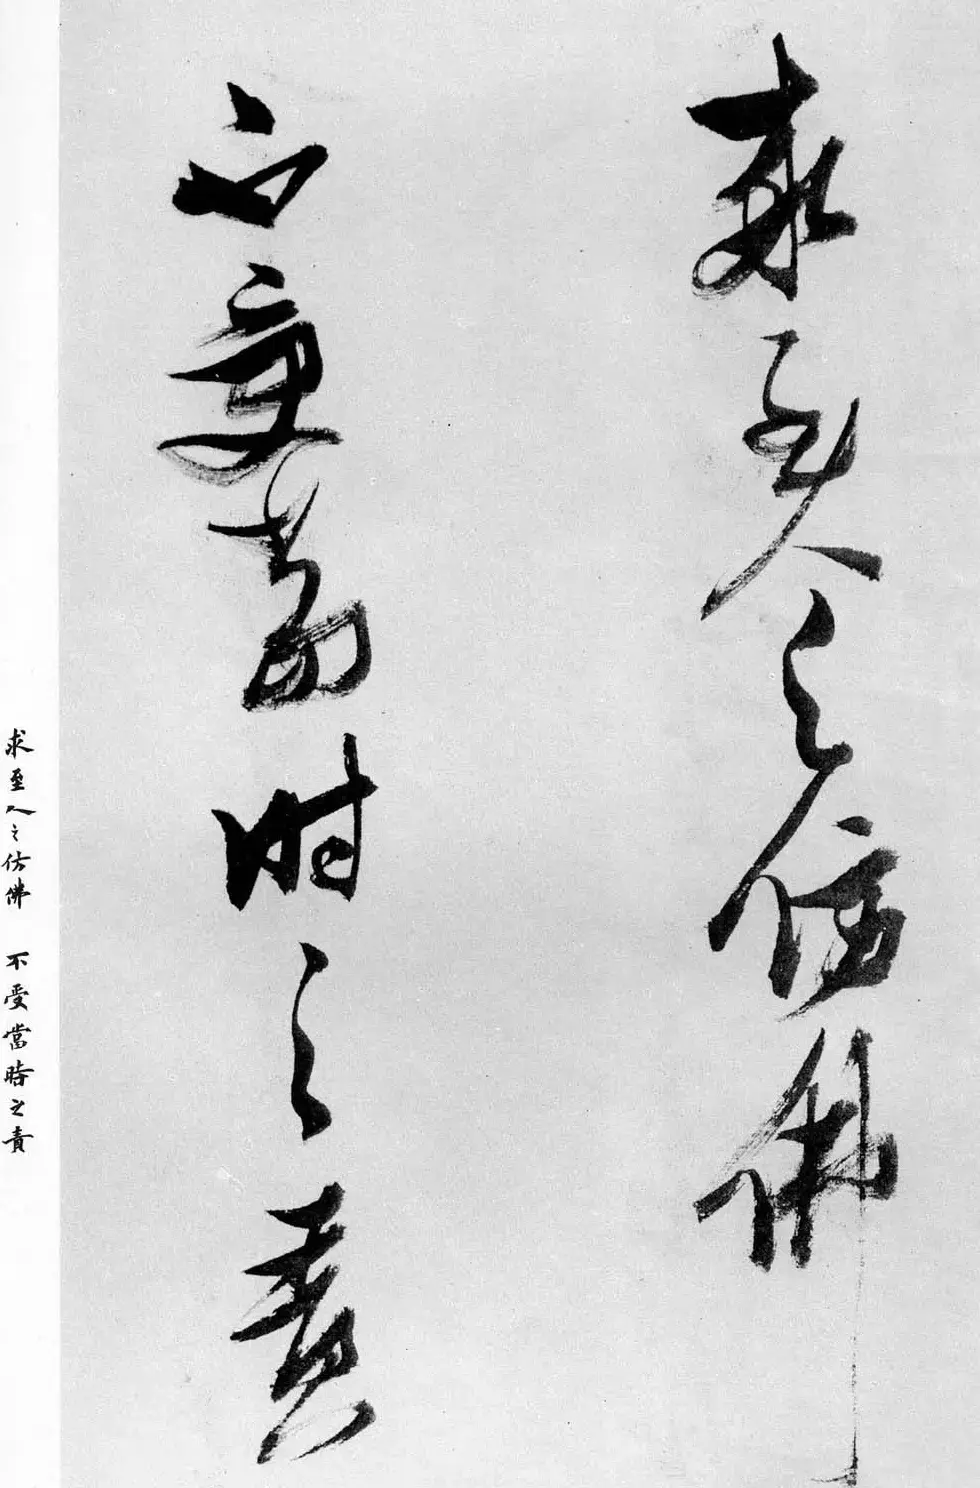 求至人之仿佛
不受當時之責
求至人之仿佛 不受當時之責